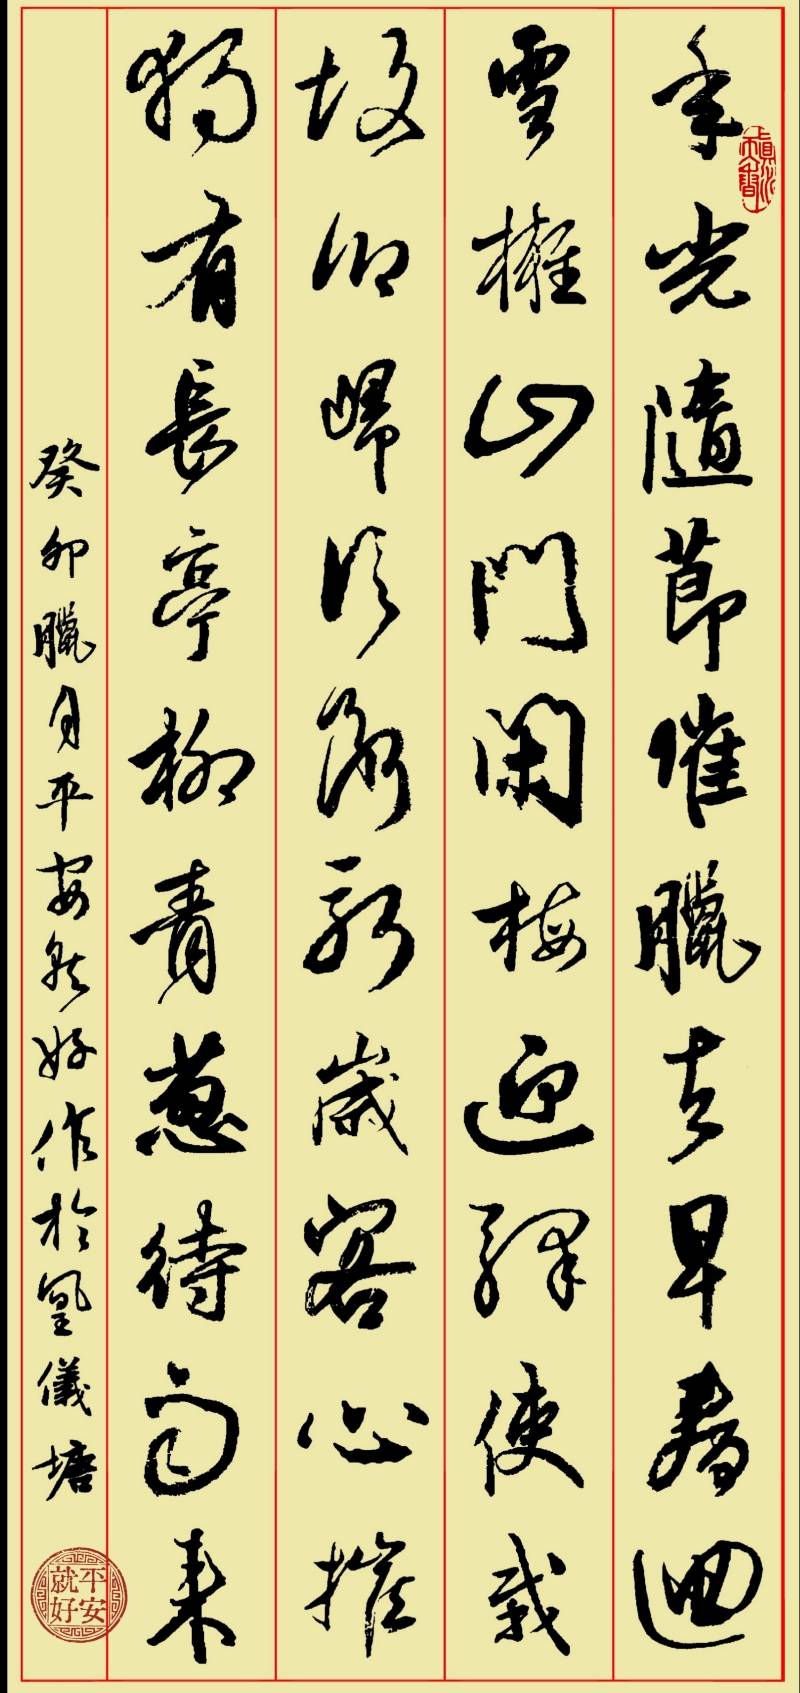 年光隨節催臘去早春迴
雪擁山門閑梅迎驛使栽
故鄉歸 新歲客心摧
獨有長亭柳青蔥待雨來
癸卯臘月平安就好作於凰儀塘
平安就好